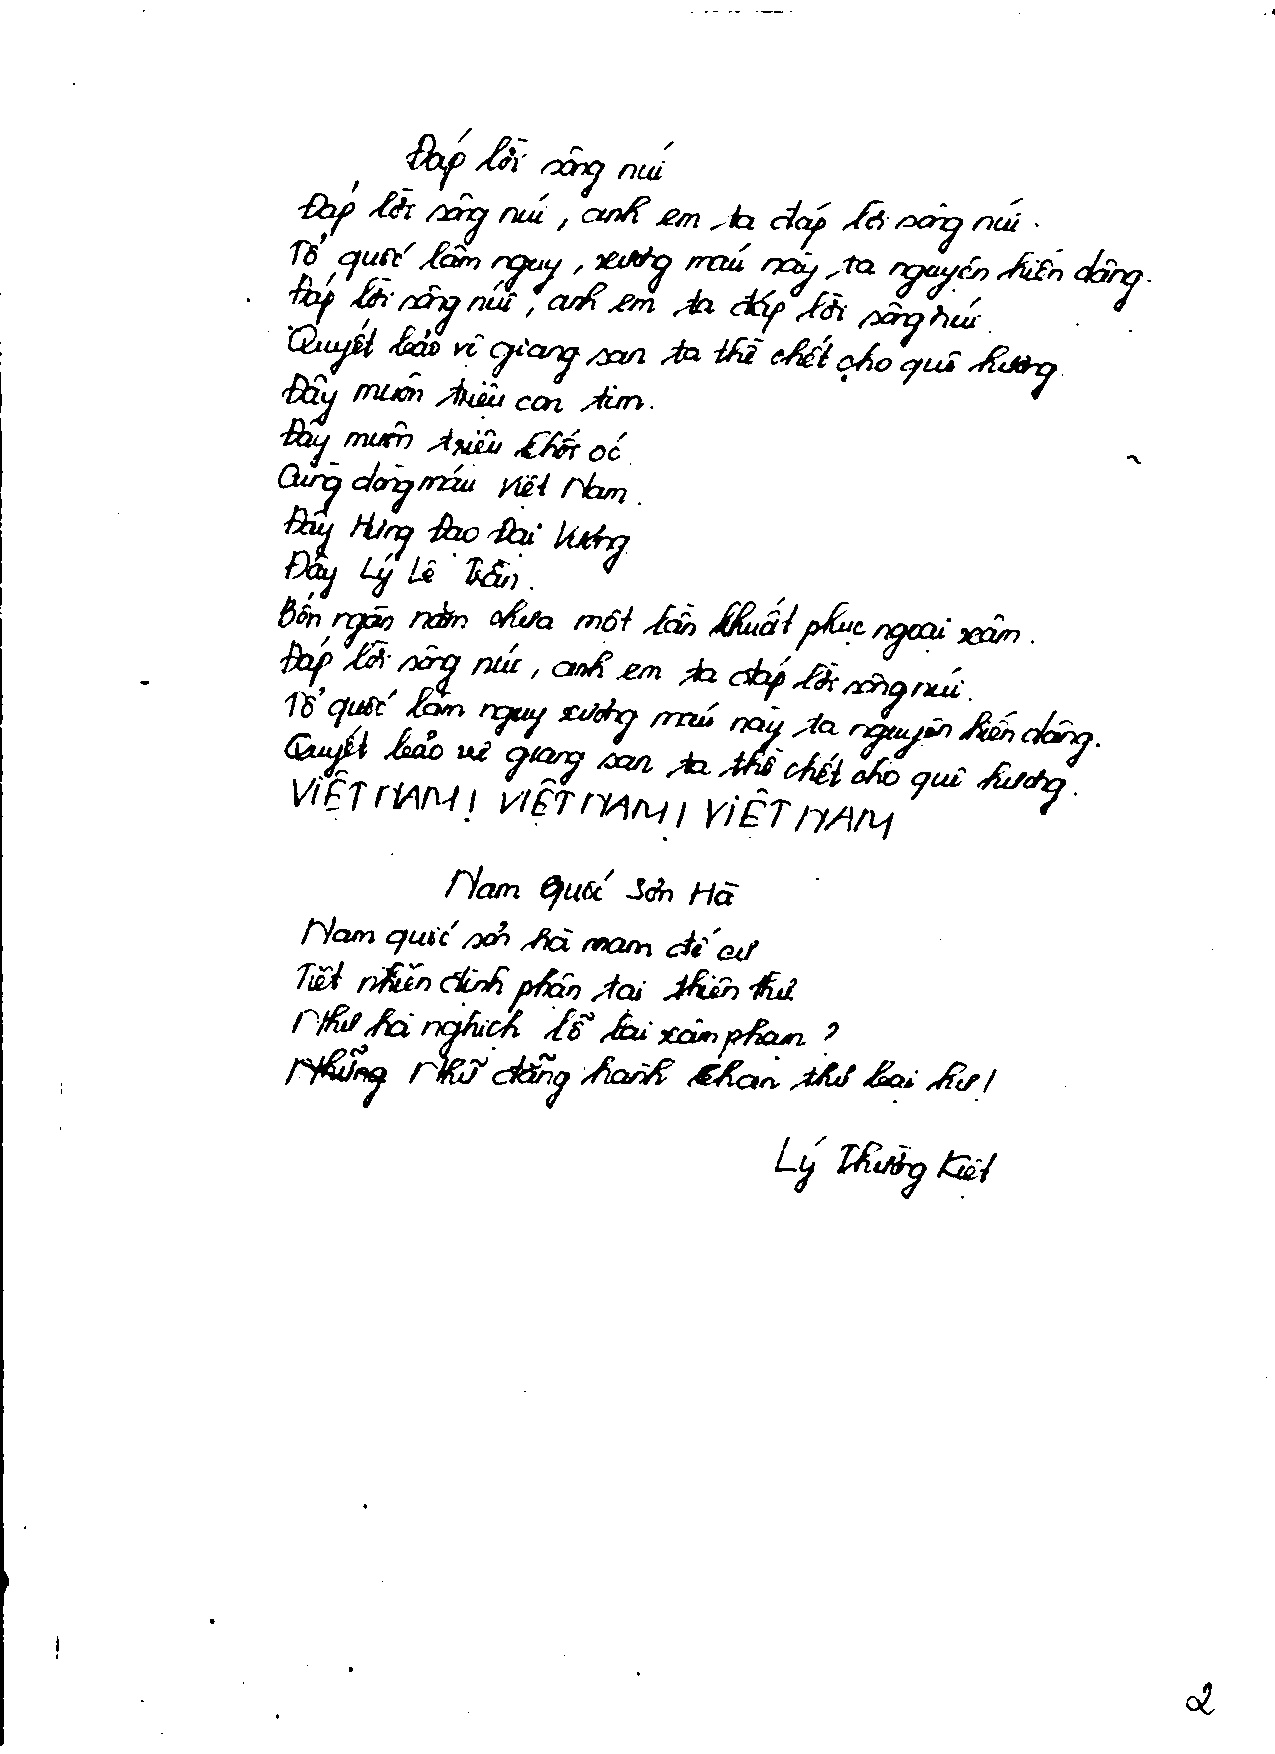 Đáp lời sông núi
Đáp lời sông núi, anh em ta đáp lời sông núi.
Tổ quốc lâm nguy, xương máu này, ta nguyện hiến dâng.
Đáp lời sông núi, anh em ta đáp lời sông núi.
Quyết bảo vệ giang san ta thề chết cho quê hương.
Đây muôn triệu con tim.
Đây muôn triệu khối óc
Cùng dòng máu Việt Nam.
Đây Hưng Đạo Đại Vương
Đây Lý Lê Trần.
Bốn ngàn năm chưa một lần khuất phục ngoại xâm.
Đáp lời sông núi, anh em ta đáp lời sông núi.
Tổ quốc lâm nguy xương máu này ta nguyện hiến dâng.
Quyết bảo vệ giang san ta thề chết cho quê hương.
VIỆT NAM! VIỆT NAM! VIỆT NAM
Nam Quốc Sơn Hà
Nam quốc sơn hà nam đế cư
Tiệt nhiên định phận tại thiên thư
Như hà nghịch lỗ lai xâm phạm?
Nhữṇg Nhữ đẳng hành khan thủ bại hư!
Lý Thường Kiệt
2